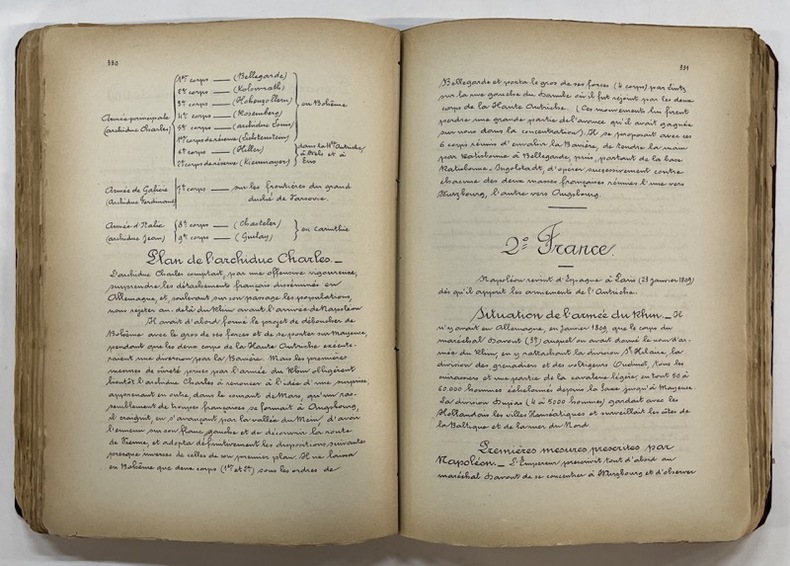 330
1er corps — (Bellegarde)
2e corps — (Kolowrath)
3e corps — (Hohenzollern)
4e corps — (Rosemberg)
5e corps — (archiduc Louis)
1er corps de réserve (Lichtenstein)
en Bohême
6e corps — (Hiller)
2e corps de réserve (Kienmayer)
dans la Hte Autriche,
à Wels et à
Enns
Armée principale
(archiduc Charles)
Armée de Galicie
(Archiduc Ferdinand)
7e corps — sur les frontières du grand
duché de Varsovie.
Armée d'Italie
(archiduc Jean)
8e corps — (Chasteler)
9e corps — (Giulay)
en Carinthie
Plan de l'archiduc Charles. —
L'archiduc Charles comptait, par une offensive vigoureuse,
surprendre les détachements français disséminés en
Allemagne et, soulevant sur son passage les populations,
nous rejeter au delà du Rhin avant l'arrivée de Napoléon
Il avait d'abord formé le projet de déboucher de
Bohême avec le gros de ses forces et de se porter sur Mayence,
pendant que les deux corps de la Haute Autriche exécute-
raient une diversion par la Bavière. Mais les premières
mesures de sûreté prises par l'armée du Rhin obligèrent
bientôt l'archiduc Charles à renoncer à l'idée d'une surprise,
apprenant en outre, dans le courant de Mars, qu'un ras-
semblement de troupes françaises se formait à Augsbourg,
il craignit en s'avançant par la vallée du Mein d'avoir
l'ennemi sur son flanc gauche et de découvrir la route
de Vienne, et adopta définitivement les dispositions suivantes
presque inverses de celles de son premier plan. Il ne laissa
en Bohême que deux corps (1er et 2e) sous les ordres de
331
Bellegarde et porta le gros de ses forces (6 corps) par Lintz
sur la rive gauche du Danube où il fut rejoint par les deux
corps de la Haute Autriche. (Ces mouvements lui firent
perdre une grande partie de l'avance qu'il avait gagnée
sur nous dans la concentration). Il se proposait avec ces
6 corps réunis d'envahir la Bavière, de tendre la main
par Ratisbonne à Bellegarde, puis, partant de la base
Ratisbonne-Ingolstadt, d'opérer successivement contre
chacune des deux masses françaises réunies l'une vers
Wurzbourg, l'autre vers Augsbourg.
2° France.
Napoléon revint d'Espagne à Paris (23 janvier 1809)
dès qu'il apprit les armements de l'Autriche.
Situation de l'armée du Rhin. — Il
n'y avait en Allemagne, en janvier 1809 que le corps du
maréchal Davout (3e) auquel on avait donné le nom d'ar-
mée du Rhin, en y rattachant la division St Hilaire, la
division des grenadiers et des voltigeurs Oudinot, tous les
cuirassiers et une partie de la cavalerie légère, en tout 50 à
60.000 hommes échelonnés depuis la Saxe jusqu'à Mayence.
La division Dupas (4 à 5000 hommes) gardait avec les
Hollandais les villes Hanséatiques et surveillait les côtes de
la Baltique et de la mer du Nord.
Premières mesures prescrites par
Napoléon. — L'Empereur prescrivit tout d'abord au
maréchal Davout de se concentrer à Wurzbourg et d'observer